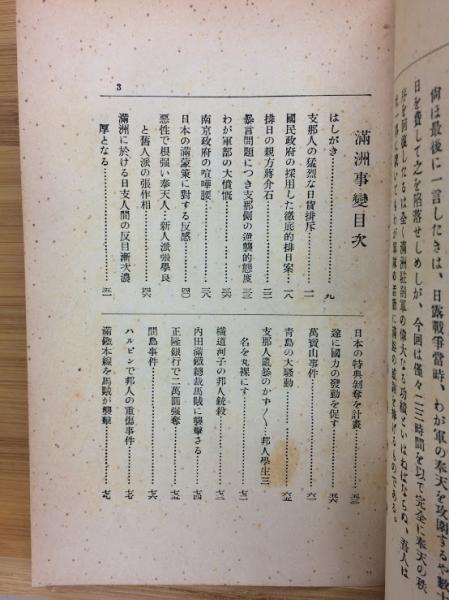 尙ほ最後に一言したきは、日露戰爭當時、わが軍の奉天を攻圍するや數十
日を費して之を陷落せしめしが、今回は僅々二三時間を以て完全に奉天の秩
序を回復したるは全く滿洲駐剳軍の偉大なる功績といはねばならぬ、吾人は
滿洲事變目次
はしがき……九
支那人の猛烈な日貨排斥……一一
國民政府の採用した徹底的排日案……一八
排日の親方蔣介石……二二
暴言問題につき支那側の逆襲的態度……二三
わが軍部の大憤慨……三六
南京政府の喧嘩腰……三八
日本の滿蒙策に對する反感……四〇
惡性で根强い奉天人…新人派張學良
と舊人派の張作相……四六
滿洲に於ける日支人間の反目漸次濃
厚となる……五一
日本の特典剝奪を計畫……五三
遂に國力の發動を促す……五六
萬寶山事件……六一
靑島の大騷動……六五
支那人亂暴のかず〱…邦人學生三
名を丸裸にす……七一
橫道河子の邦人銃殺……七二
內田滿鐵總裁馬賊に襲擊さる……七四
正隆銀行で二萬圓强奪……七五
間島事件……七六
ハルビンで邦人の重傷事件……七六
滿鐵本線を馬賊が襲擊……七九
3